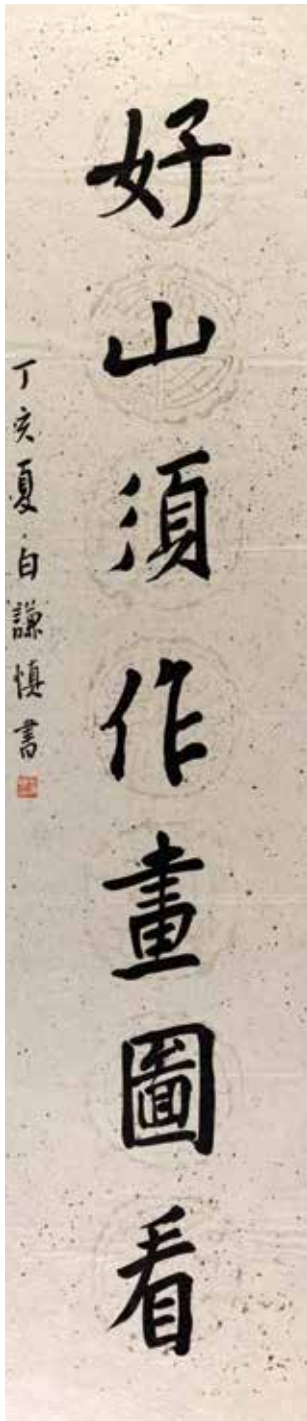 好山須作畫圖看
丁亥夏白謙慎書